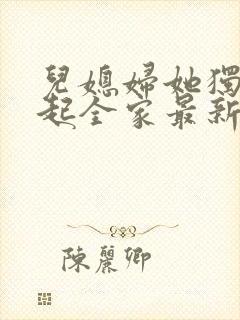 兒媳婦她獨
起全家最新
陳麗卿